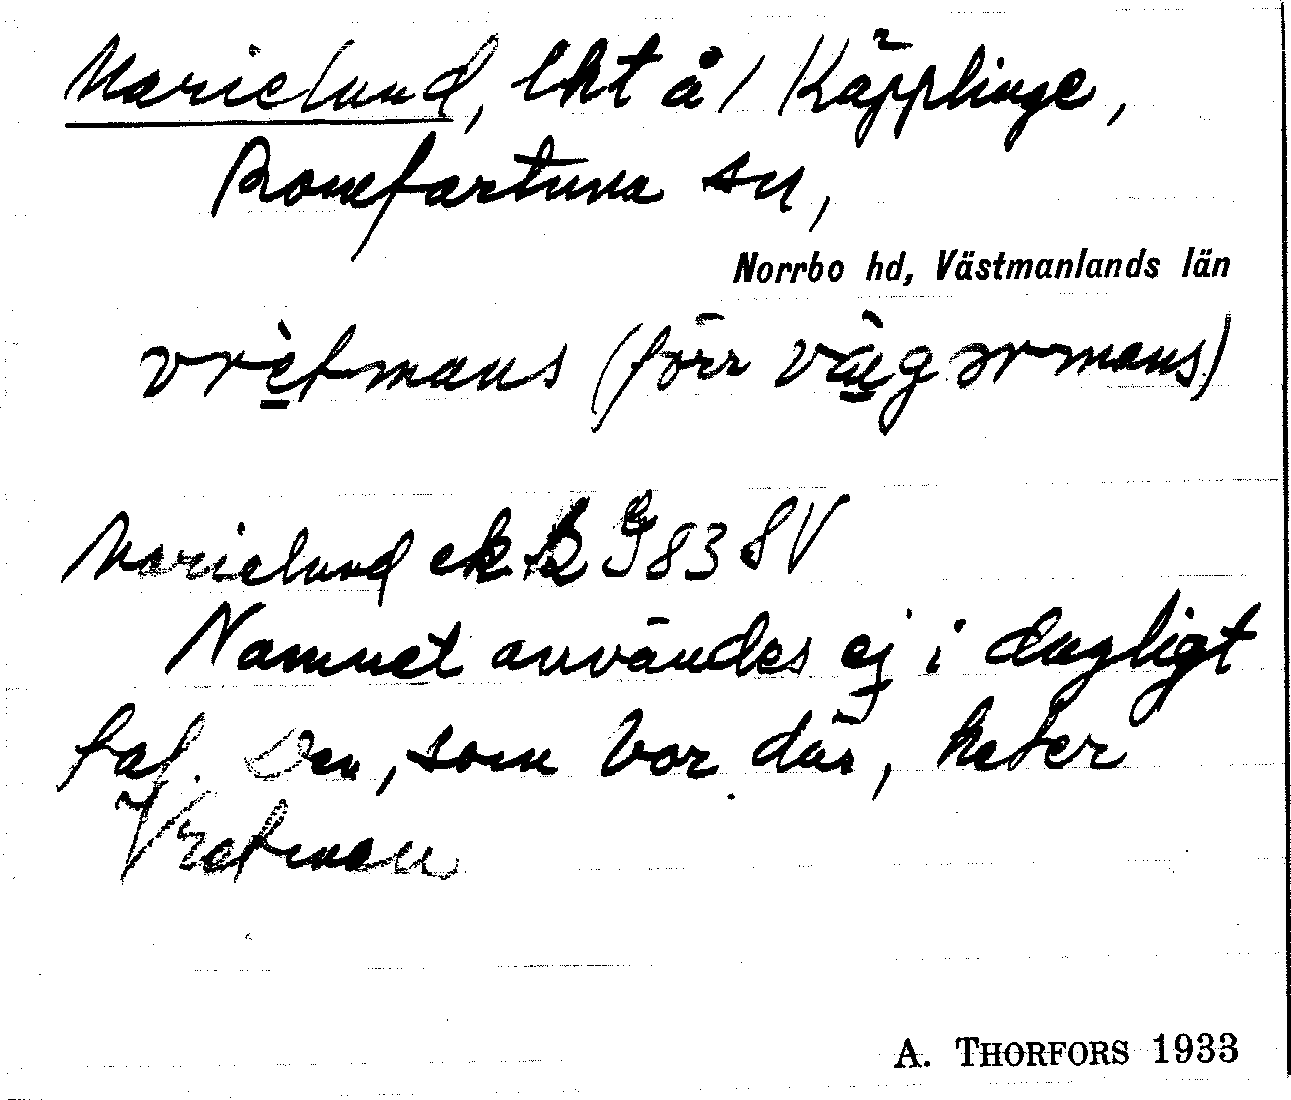 Marielund, lht å 1 Käpplinge,
Romfartuna sn,
Norrbo hd, Västmanlands län
vrètmans (förr vä̀gərmans)
Marielund ek R G 83 8V
Namnet användes ej i dagligt
tal. Den, som bor där, heter
Vretman
A. THORFORS 1933